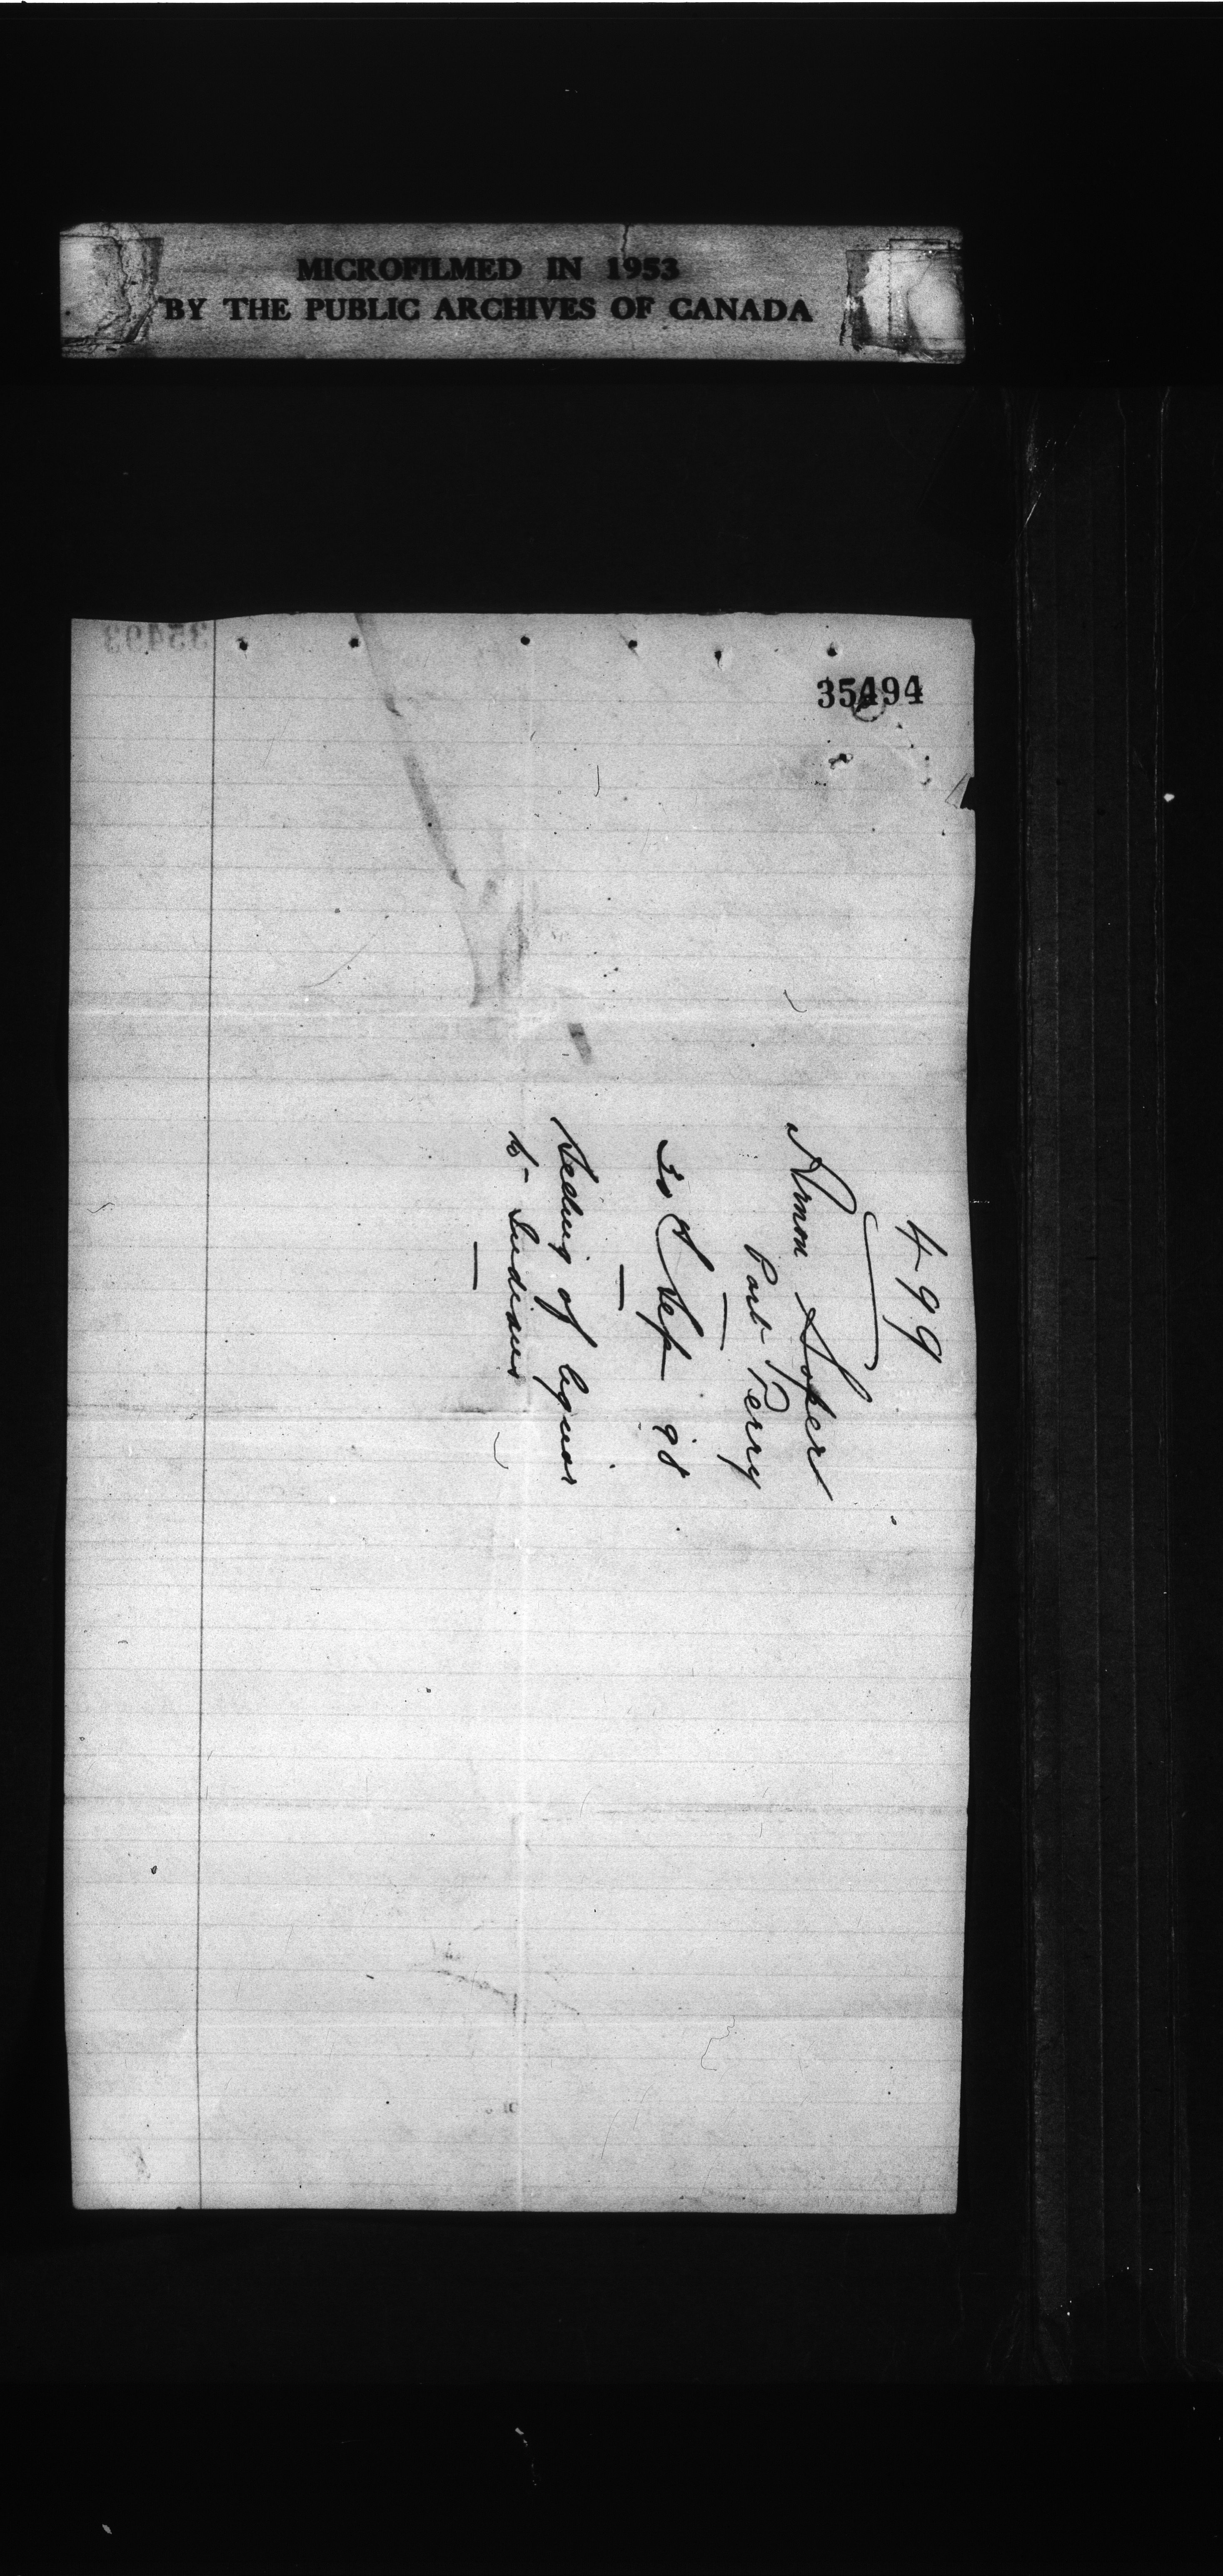 MICROFILMED IN 1953
BY THE PUBLIC ARCHIVES OF CANADA
35493
35494
499
Soper
Port Perry
Sep 98
Selling of liquor
to Indians